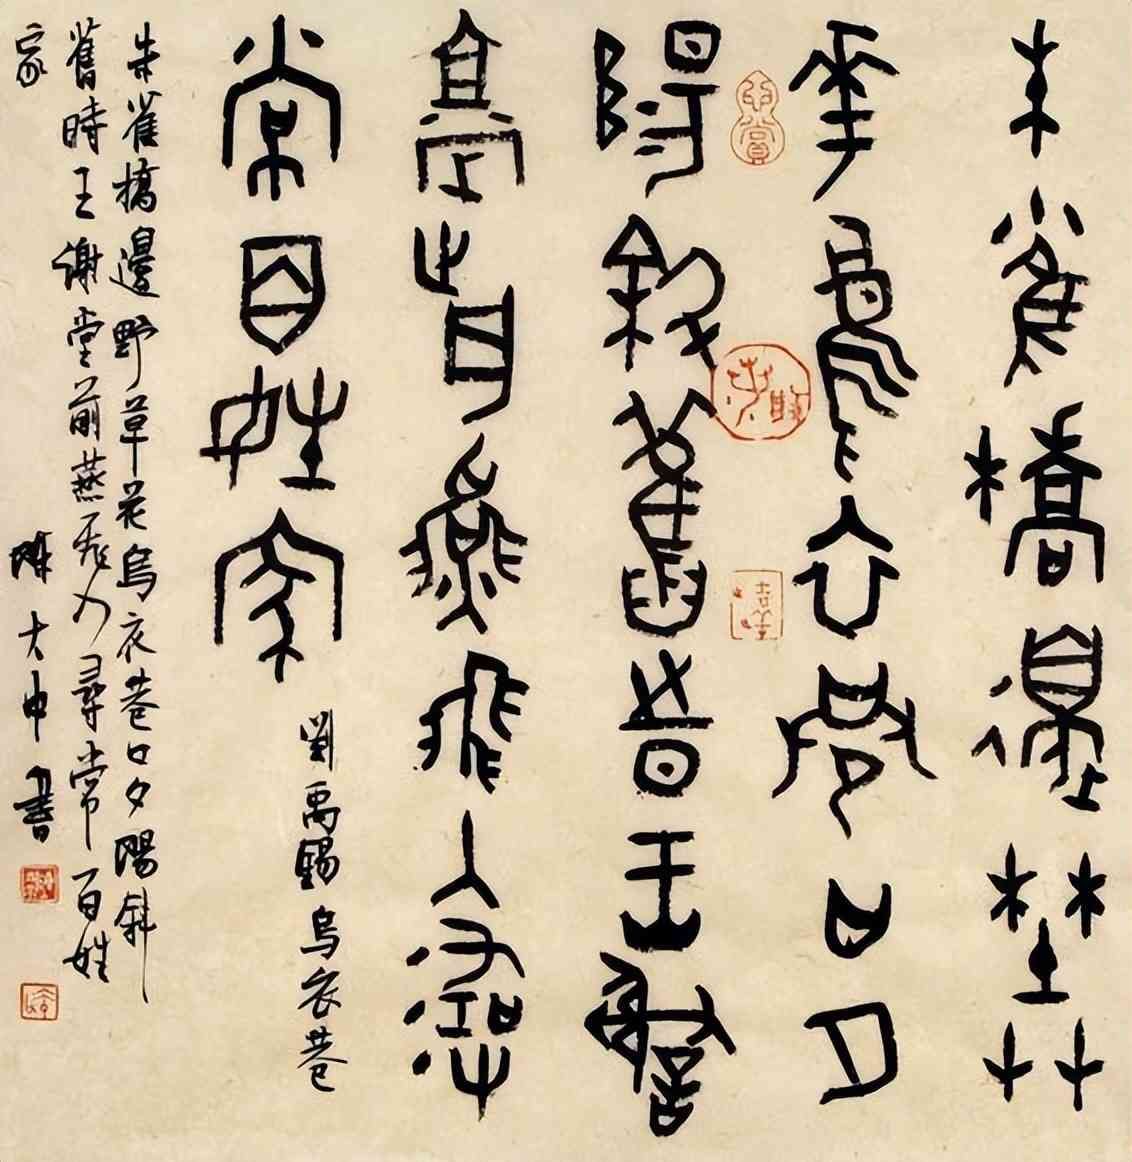 朱雀橋邊野艸
華烏衣巷口夕
陽斜舊時王謝
堂前燕飛入尋
常百姓家
劉禹錫烏衣巷
朱雀橋邊野草花烏衣巷口夕陽斜
舊時王謝堂前燕飛入尋常百姓
家
陳大中書